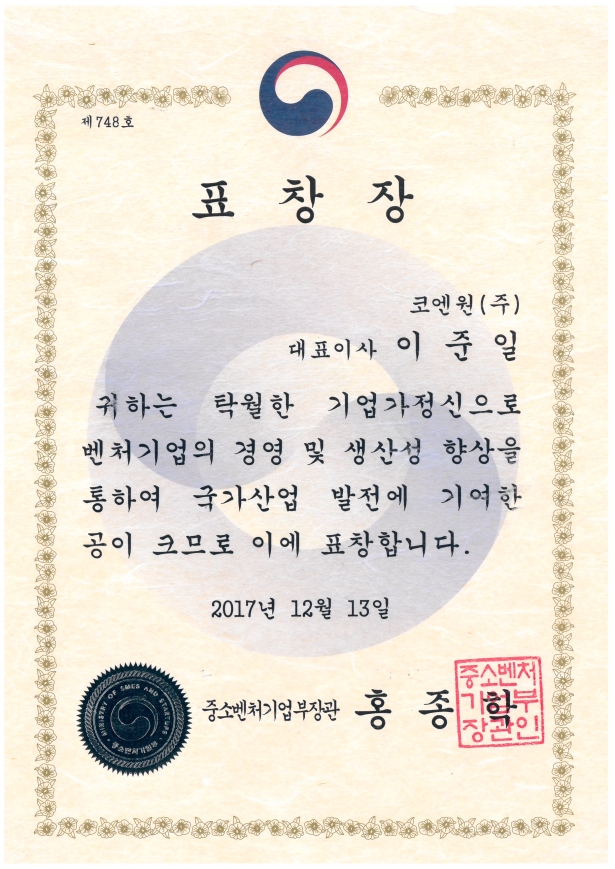 제 748 호
표 창 장
코엔원(주)
대표이사 이 준 일
귀하는 탁월한 기업가정신으로
벤처기업의 경영 및 생산성 향상을
통하여 국가산업 발전에 기여한
공이 크므로 이에 표창합니다.
2017년 12월 13일
중소벤처기업부장관 홍 종 학
중소벤처
기업부
장관인
MINISTRY OF SMES AND STARTUPS
중소벤처기업부